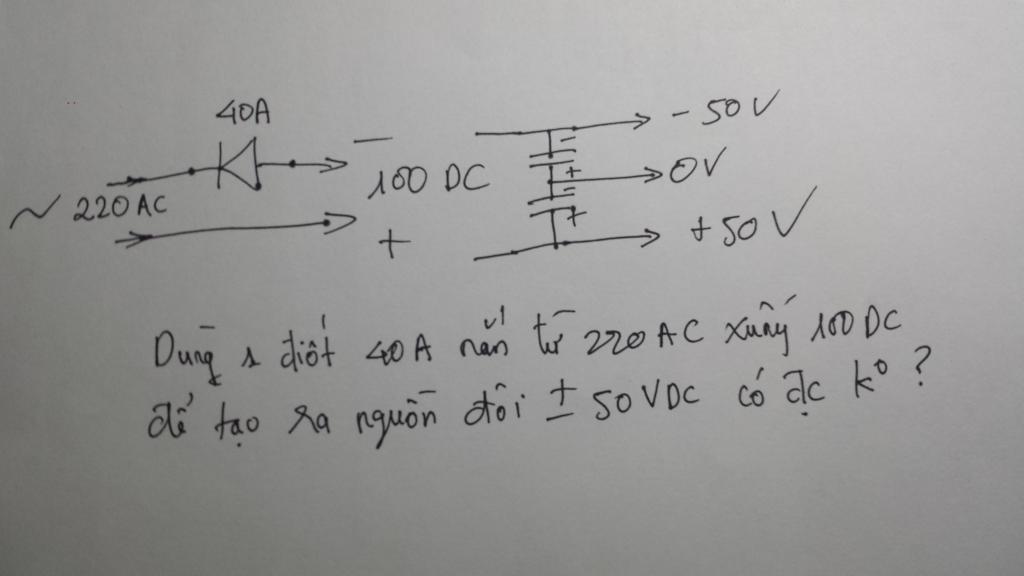 40A
− 50 V
−
−
100 DC
+
0V
~ 220 AC
−
+
+
+ 50 V
Dùng 1 điốt 40A nắn từ 220 AC xuống 100 DC
để tạo ra nguồn đôi ± 50 VDC có đc k° ?